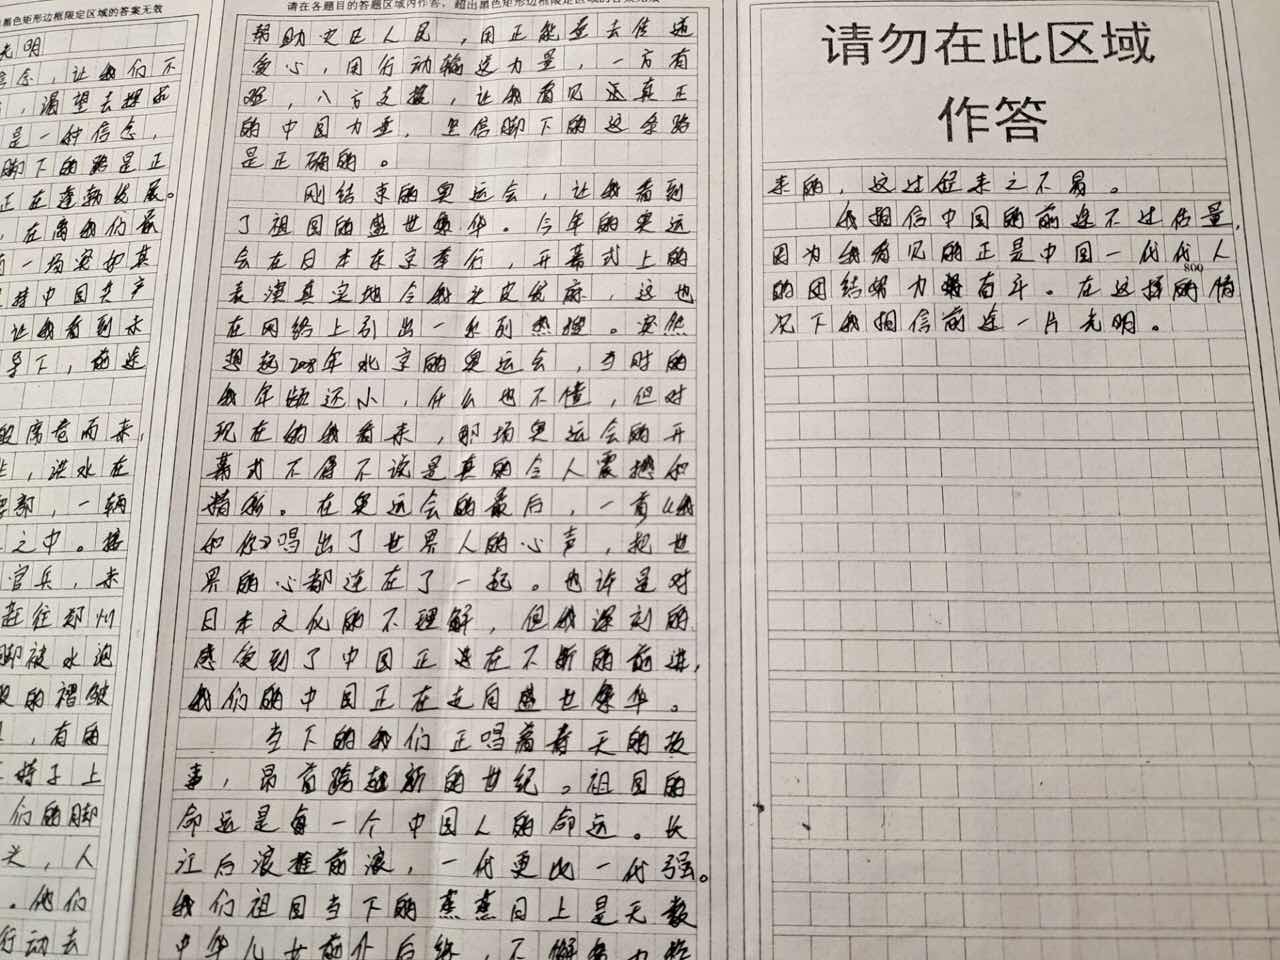 黑色矩形边框限定区域的答案无效
光明
信念，让我们不
，渴望去探索
是一种信念，
脚下的路是正
正在蓬勃发展。
，在离我们最
一场突如其
持中国共产
让我看到未
导下，前途
席卷而来，
，洪水在
部，一辆
之中。接
官兵，未
赶往郑州
脚被水泡
的褶皱
，有的
椅子上
们的脚
头，人
。他们
行动去
请在各题目的答题区域内作答，超出黑色矩形边框限定区域的答案无效
帮助灾区人民，用正能量去传递
爱心，用行动输送力量，一方有
难，八方支援，让我看见这真正
的中国力量，坚信脚下的这条路
是正确的。
刚结束的奥运会，让我看到
了祖国的盛世繁华。今年的奥运
会在日本东京举行，开幕式上的
表演真实地令我头皮发麻，这也
在网络上引出一系列热搜。突然
想起2008年北京的奥运会，当时的
我年龄还小，什么也不懂，但对
现在的我看来，那场奥运会的开
幕式不得不说是真的令人震撼和
精彩。在奥运会的最后，一首《我
和你》唱出了世界人的心声，把世
界的心都连在了一起。也许是对
日本文化的不理解，但我深刻的
感受到了中国正这在不断的前进，
我们的中国正在走向盛世繁华。
当下的我们正唱着春天的故
事，昂首跨越新的世纪。祖国的
命运是每一个中国人的命运。长
江后浪推前浪，一代更比一代强。
我们祖国当下的蒸蒸日上是无数
中华儿女前仆后继，不懈努力
请勿在此区域
作答
来的，这过程来之不易。
我相信中国的前途不过估量，
因为我看见的正是中国一代代人
800
的团结努力奋斗。在这样的情
况下我相信前途一片光明。